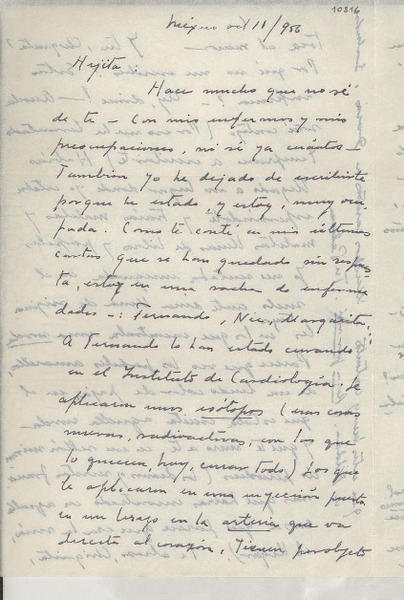 10816
México oct 11/956
Hijita:
Hace mucho que no sé
de ti — Con mis enfermos y mis
preocupaciones, ni sé ya cuántos —
También yo he dejado de escribirte
porque he estado, y estoy, muy ocu-
pada. Como te conté en mis últimas
cartas que se han quedado sin respues-
ta, estoy en una racha de enferme
dades —: Fernando, Nieves, Margarita.
A Fernando lo han estado curando
en el Instituto de Cardiología. Le
aplicaron unos isótopos (esas cosas
nuevas, radioactivas, con las que
lo quieren, hoy, curar todo) Los que
le aplicaron en una inyección puesta
en un brazo en la arteria que va
directa al corazón, tienen por objeto